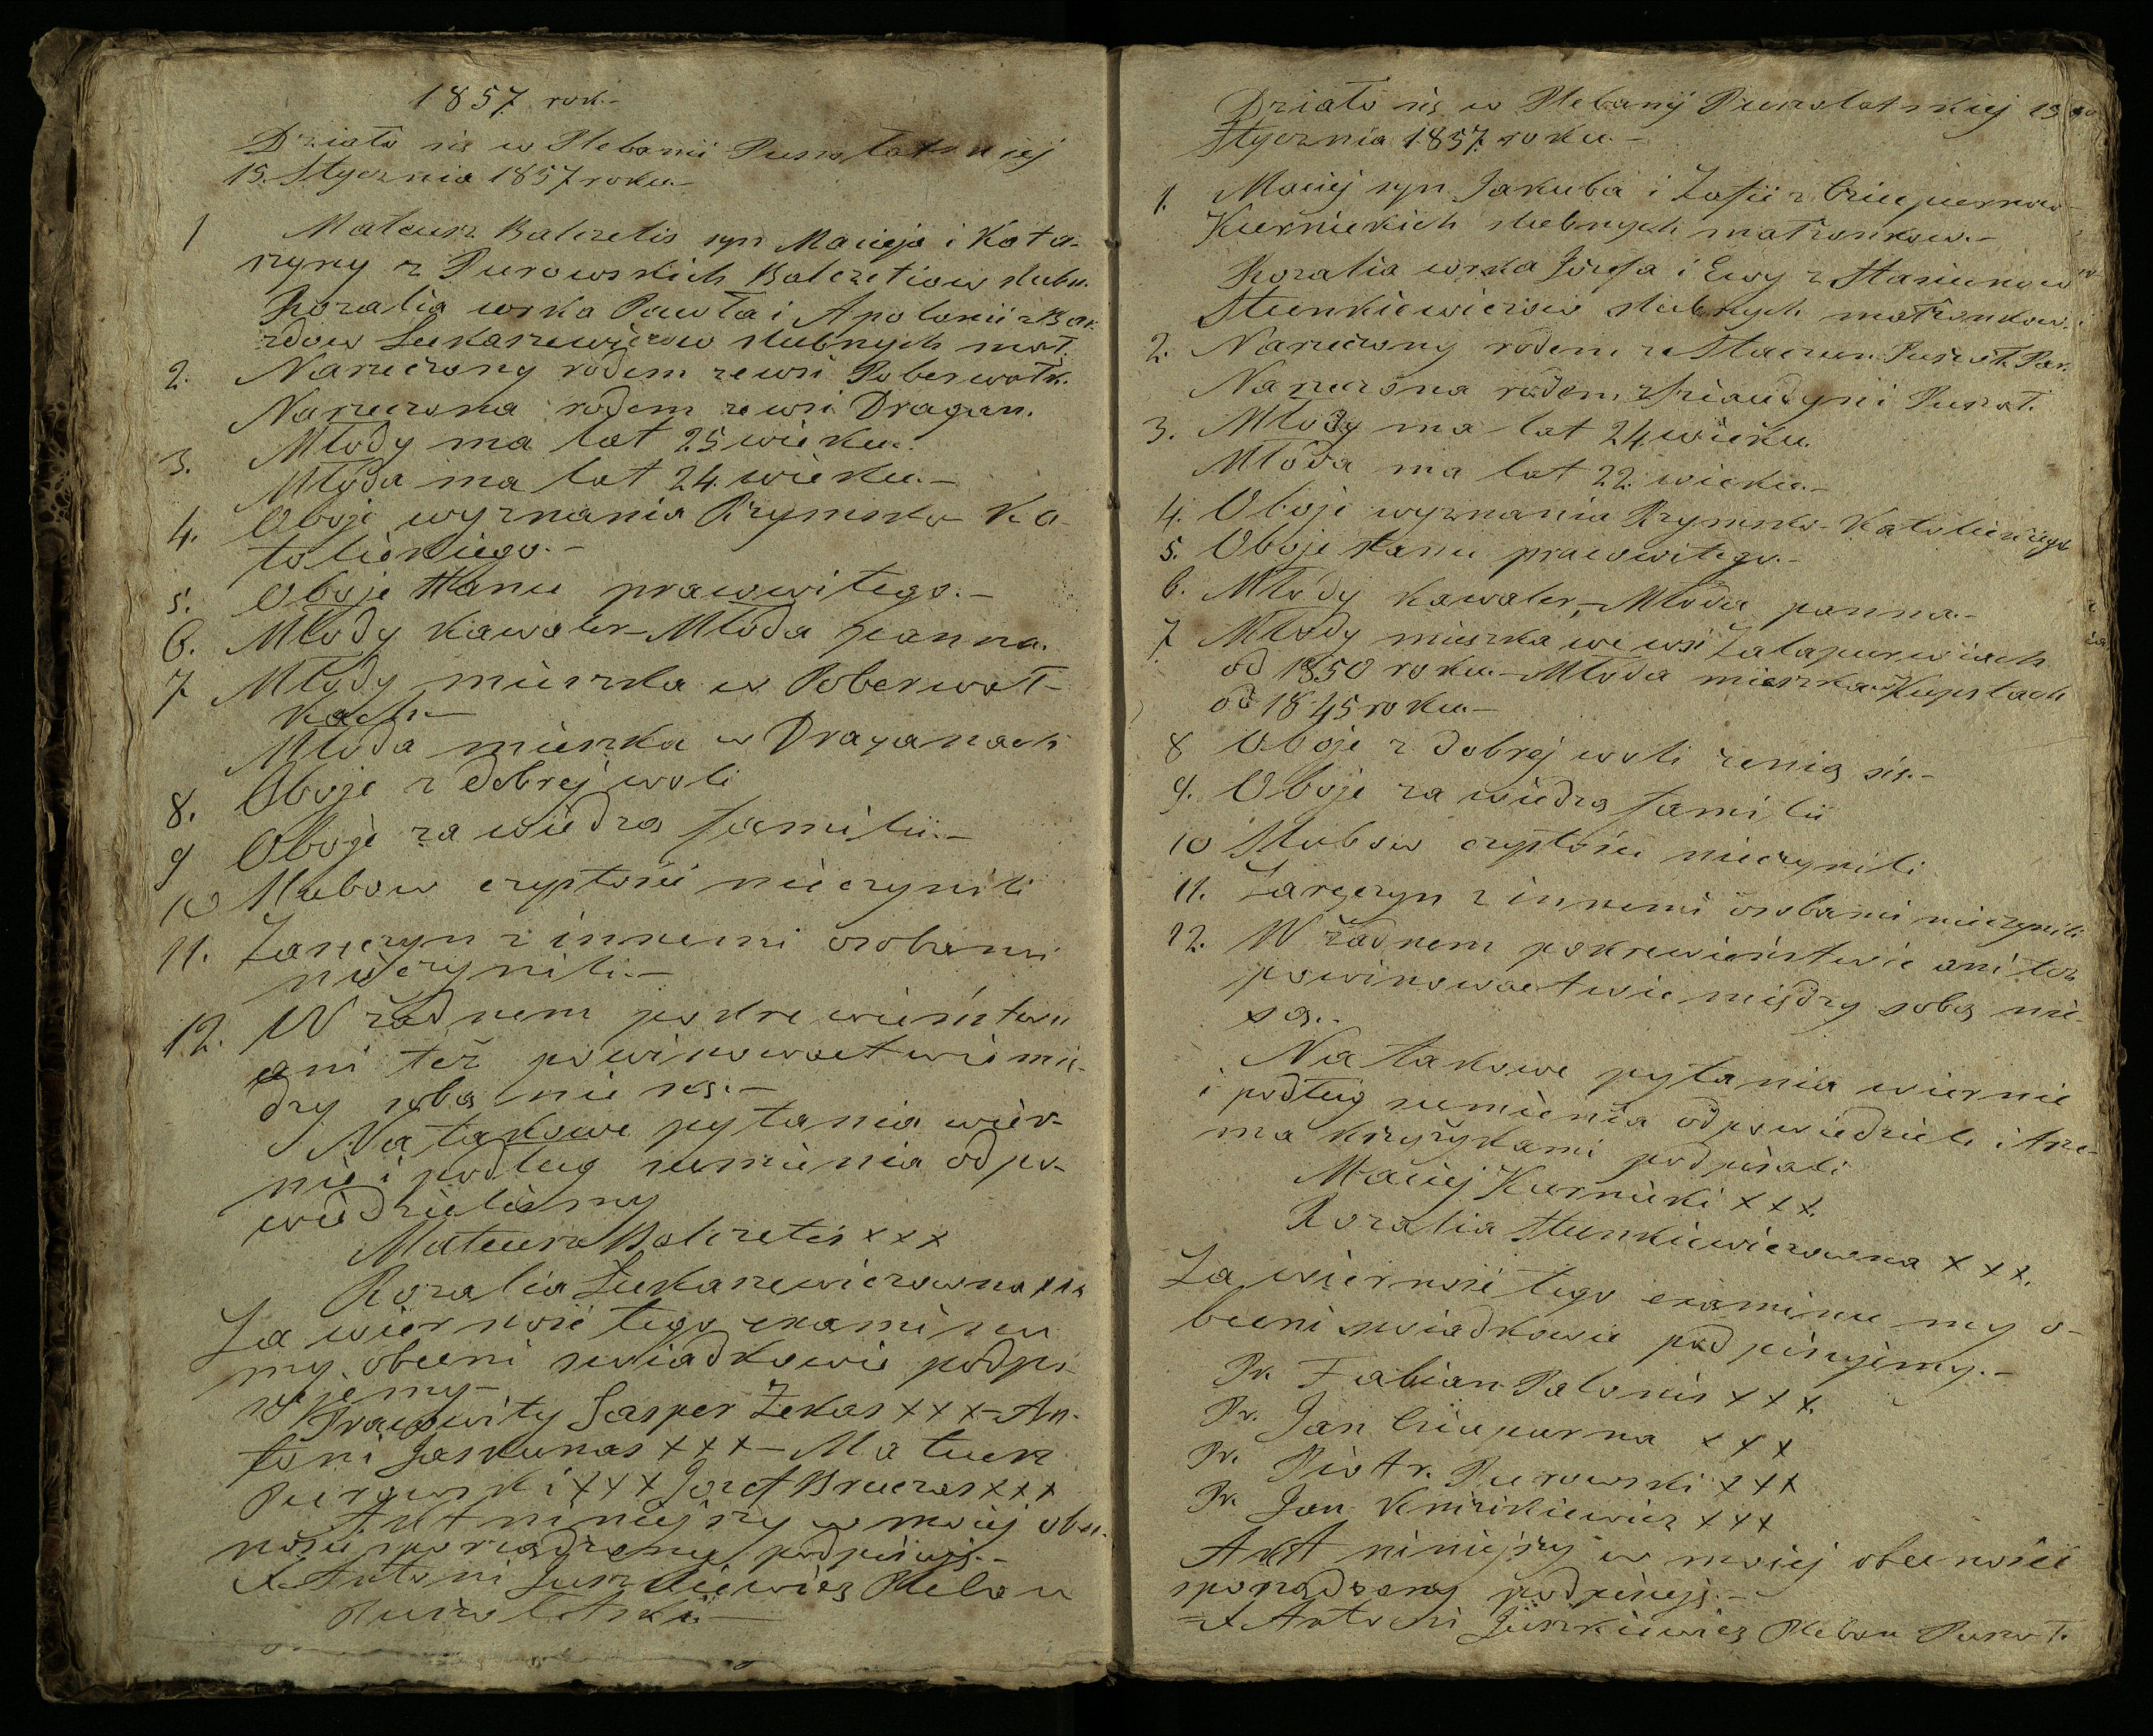 1857 rok.-
Działo się w Plebanii
15. Stycznia 1857 roku.-
1 Mateusz Balczetis syn Macieja i Kata-
rzyny z Purowskich Balczetiow slubn.
Rozalia corka Pawła i Apolonii z Bar-
zdow Łukaszewiczow slubnych małż.
2. Narzeczony rodem ze wsi Poberwotk.
Narzeczona rodem ze wsi Dragan.
3. Młody ma lat 25 wieku.
Młoda ma lat 24. wieku.-
4. Oboje wyznania Rzymsko-Ka-
tolickiego.-
5. Oboje stanu prawowitego.-
6. Młody kawaler-Młoda panna.
7 Młody mieszka w Poberwot-
kach.-
Młoda mieszka w Draganach
8. Oboje z dobrej woli
9 Oboje za wiedzą familii.-
10 Slubow czystości nieczynili
11. Zaręczyn z innemi osobami
nieczynili.-
12. W żadnem pokrewieństwie
ani też powinowactwie mię-
dzy sobą nie są.-
Na takowe pytania wier-
nie i podług sumienia odpo-
wiedzielismy
Mateusz Balczetis xxx
Rozalia Łukaszewiczowna xxx
Za wiernosć tego examinu
my obecni swiadkowie podpi-
sujemy-
Prawowity Jasper Żekas xxx-An-
toni Jaskunas xxx-Mateusz
Purowski xxx Jozef xxx
Akt niniejszy w mojej obec-
nosci sporządzony podpisuję.-
X. Antoni Juszkiewicz Pleban
-
Działo się w Plebanij 15 go
Stycznia 1857 roku.-
1. Maciej syn Jakuba i Zofii z
Kurnickich slubnych małżonkow.-
Rozalia corka Józefa i Ewy z
Stunkiewiczow slubnych małżonkow.
2. Narzeczony rodem z Par.
Narzeczona rodem
3. Młody ma lat 24 wieku.
Młoda ma lat 22. wieku.-
4. Oboje wyznania Rzymsko-Katolickiego
5. Oboje stanu prawowitego.-
6. Młody kawaler,-Młoda panna.-
7 Młody mieszka we wsi
od 1850 roku.-Młoda mieszka w Kupstach
od 1845 roku.-
8 Oboje z dobrej woli żenią się.-
9. Oboje za wiedzą familii
10 Slubow czystości nieczynili
11. Zaręczyn z innemi osobami nieczynili
12. W żadnem pokrewieństwie ani też
powinowactwie między sobą nie
są.-
Na takowe pytania wiernie
i podług sumienia odpowiedzieli i trze-
ma krzyżykami podpisali
Maciej Kurnicki xxx.
Rozalia Stunkiewiczowna xxx.
Za wiernosć tego examinu my o-
becni swiadkowie podpisujemy.-
Pr. Fabian Palonis xxx.
Pr. Jan xxx
Pr. Piotr Purowski xxx
Pr. Jan xxx
Akt niniejszy w mojej obecnosci
sporządzony podpisuję.-
X Antoni Juszkiewicz Pleban